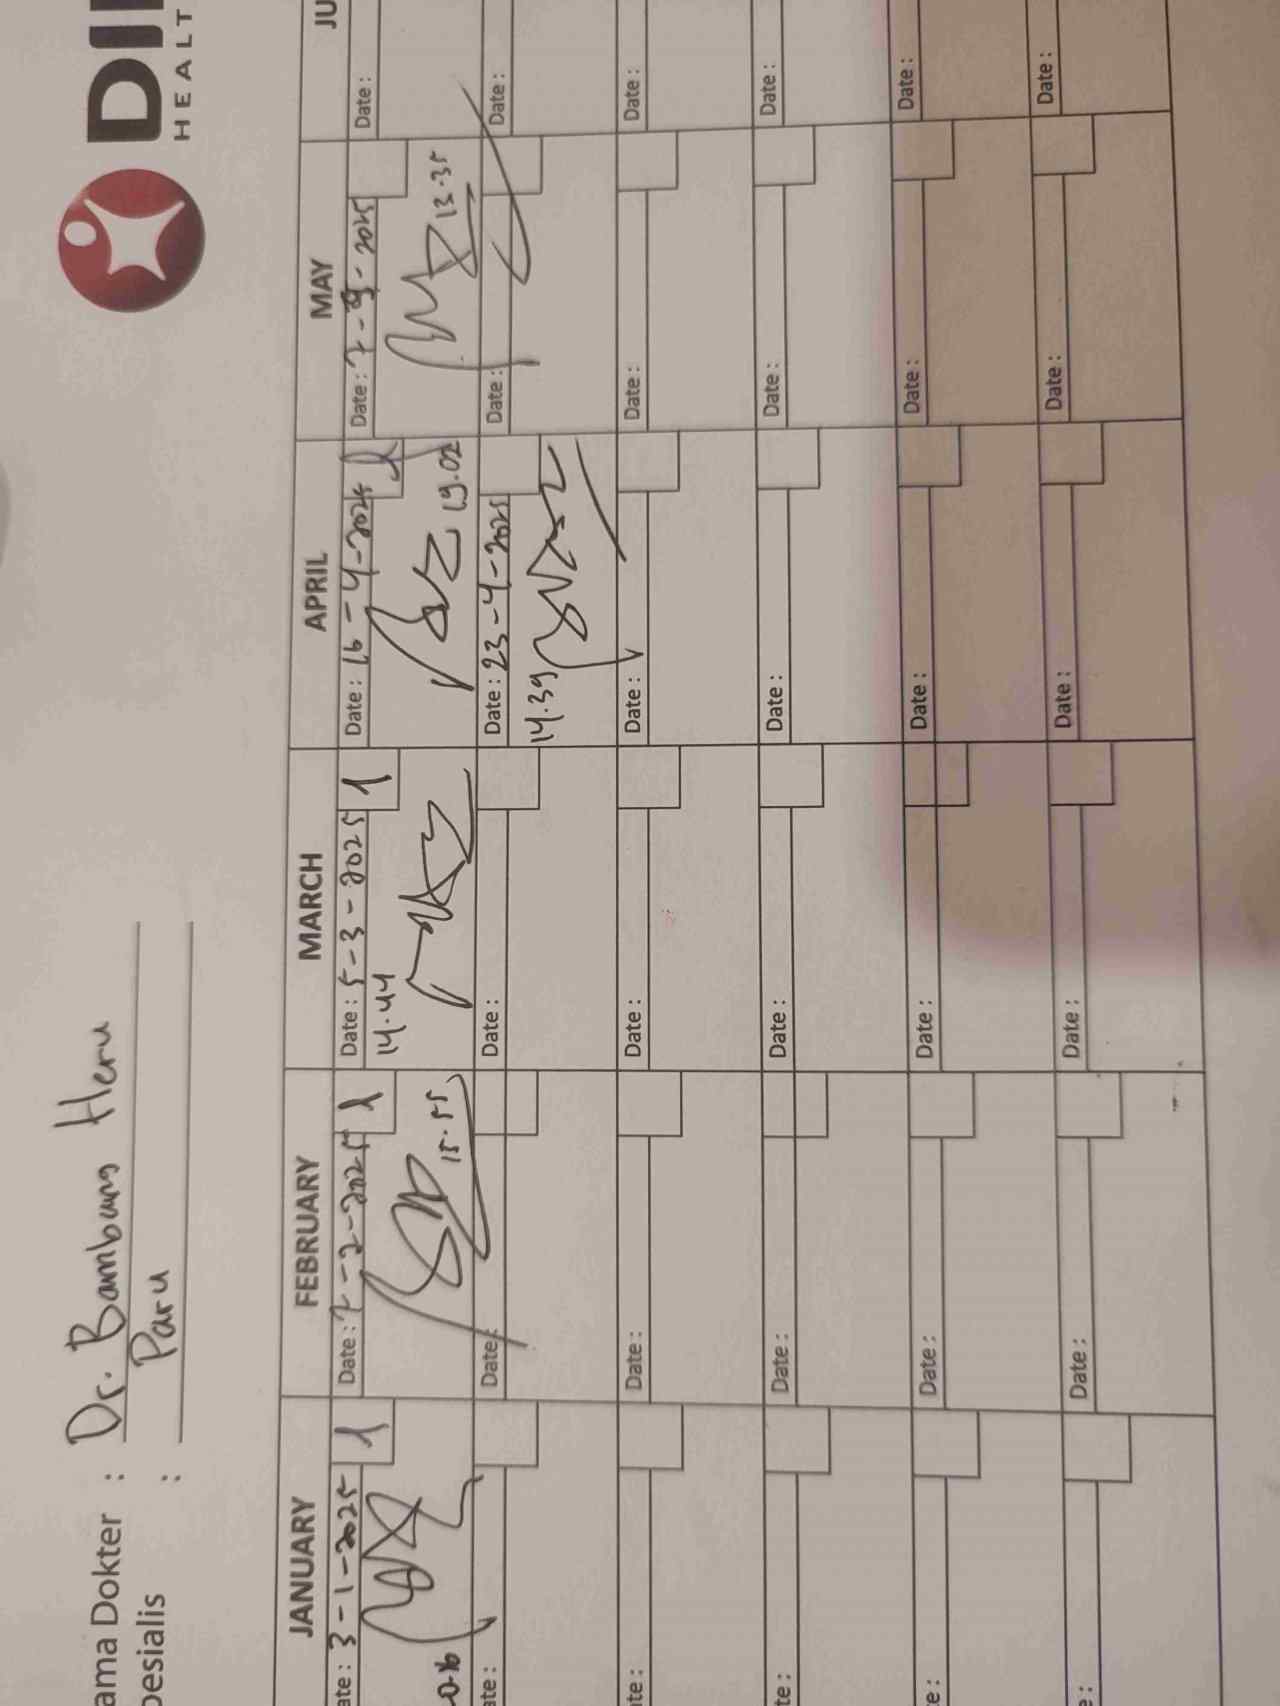 DI
HEALT
ama Dokter : Dr. Bambang Heru
pesialis : Paru
JANUARY FEBRUARY MARCH APRIL MAY JU
ate : 3-1-2025 1 Date : 7-2-2025 1 Date : 5-3-2025 1 Date : 16-4-2025 Date : 7-5-2025 Date :
15.55 14.44 19.02 13.35
ate : Date : Date : Date : 23-4-2025 Date : Date :
14.39
ate : Date : Date : Date : Date : Date :
te : Date : Date : Date : Date : Date :
e : Date : Date : Date : Date : Date :
e : Date : Date : Date : Date : Date :